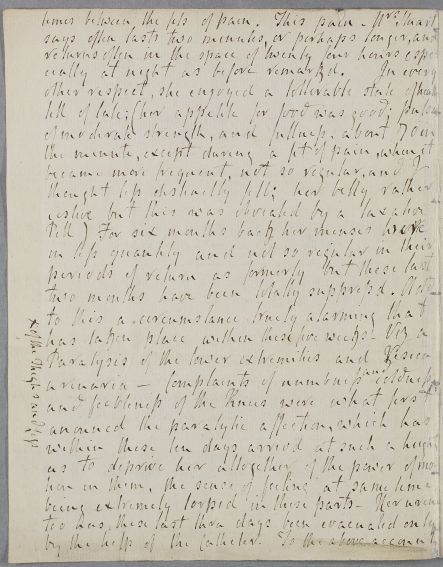 times between the fits of pain. This pain Mrs. Stuart
says often lasts two minutes, or perhaps longer, and
returns often in the space of twenty four hours espe
cially at night as before remarked. In every
other respect, she enjoyed a tolerable state of health
till of late; (her appetite for food was good; pulse
of moderate strength, and fullness, about 70 in
the minute, except during a fit of pain, when it
became more frequent, not so regular, and I
thought less full; her belly rather
costive but this was obviated by a laxative
Pill) For six months back her menses were
in less quantity and not so regular in their
periods of return as formerly but these last
two months have been totally suppress'd. Add
to this a circumstance truly alarming that
has taken place within these five weeks - Viz a
Paralysis of the lower extremities and Vesica
urinaria - Complaints of numbness and coldness
and feebleness of the Knees were what first
anounced the paralytic affection, which has
within these ten days arrived at such a height
as to deprive her altogether of the power of mo
tion in them, the sense of feeling at same time
being extremely torpid in these parts - Her urine
too has, these last three days been evacuated only
by the help of the Catheter. To the above account
x of the thighs and legs